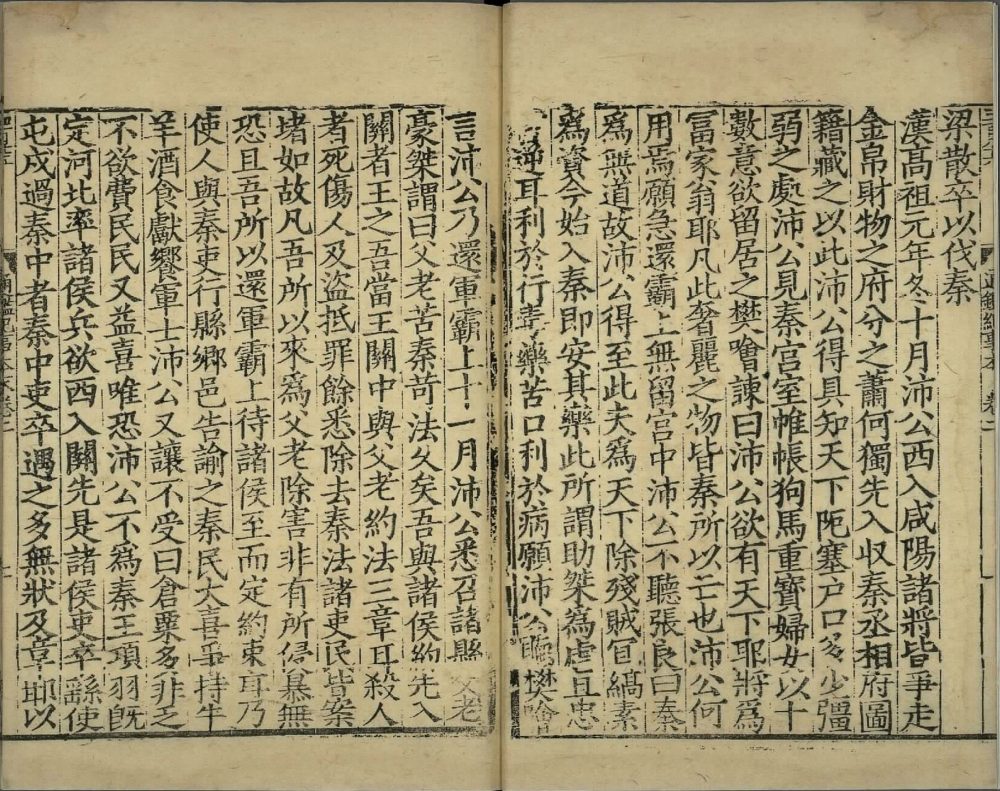 梁散卒以伐秦
漢高祖元年冬十月沛公西入咸陽諸將皆爭走
金帛財物之府分之蕭何獨先入収秦丞相府圖
籍藏之以此沛公得具知天下阨塞户口多少彊
弱之處沛公見秦宫室帷帳狗馬重寶婦女以十
數意欲留居之樊噲諫曰沛公欲有天下耶將爲
富家翁耶凡此奢麗之物皆秦所以亡也沛公何
用焉願急還霸上無留宫中沛公不聽張良曰秦
爲無道故沛公得至此夫爲天下除殘賊冝縞素
爲資今始入秦即安其藥此所謂助桀爲虐且忠
逆耳利於行毒藥苦口利於病願沛公聽樊噲
言沛公乃還軍霸上十一月沛公悉召諸縣父老
豪桀謂曰父老苦秦苛法久矣吾與諸侯約先入
關者王之吾當王關中與父老約法三章耳殺人
者死傷人及盗抵罪餘悉除去秦法諸吏民皆案
堵如故凡吾所以來爲父老除害非有所侵暴無
恐且吾所以還軍霸上待諸侯至而定約束耳乃
使人與秦吏行縣郷邑告諭之秦民大喜爭持牛
羊酒食獻饗軍士沛公又讓不受曰倉粟多非乏
不欲費民民又益喜唯恐沛公不爲秦王項羽旣
定河北率諸侯兵欲西入關先是諸侯吏卒繇使
屯戍過秦中者秦中吏卒遇之多無狀及章邯以